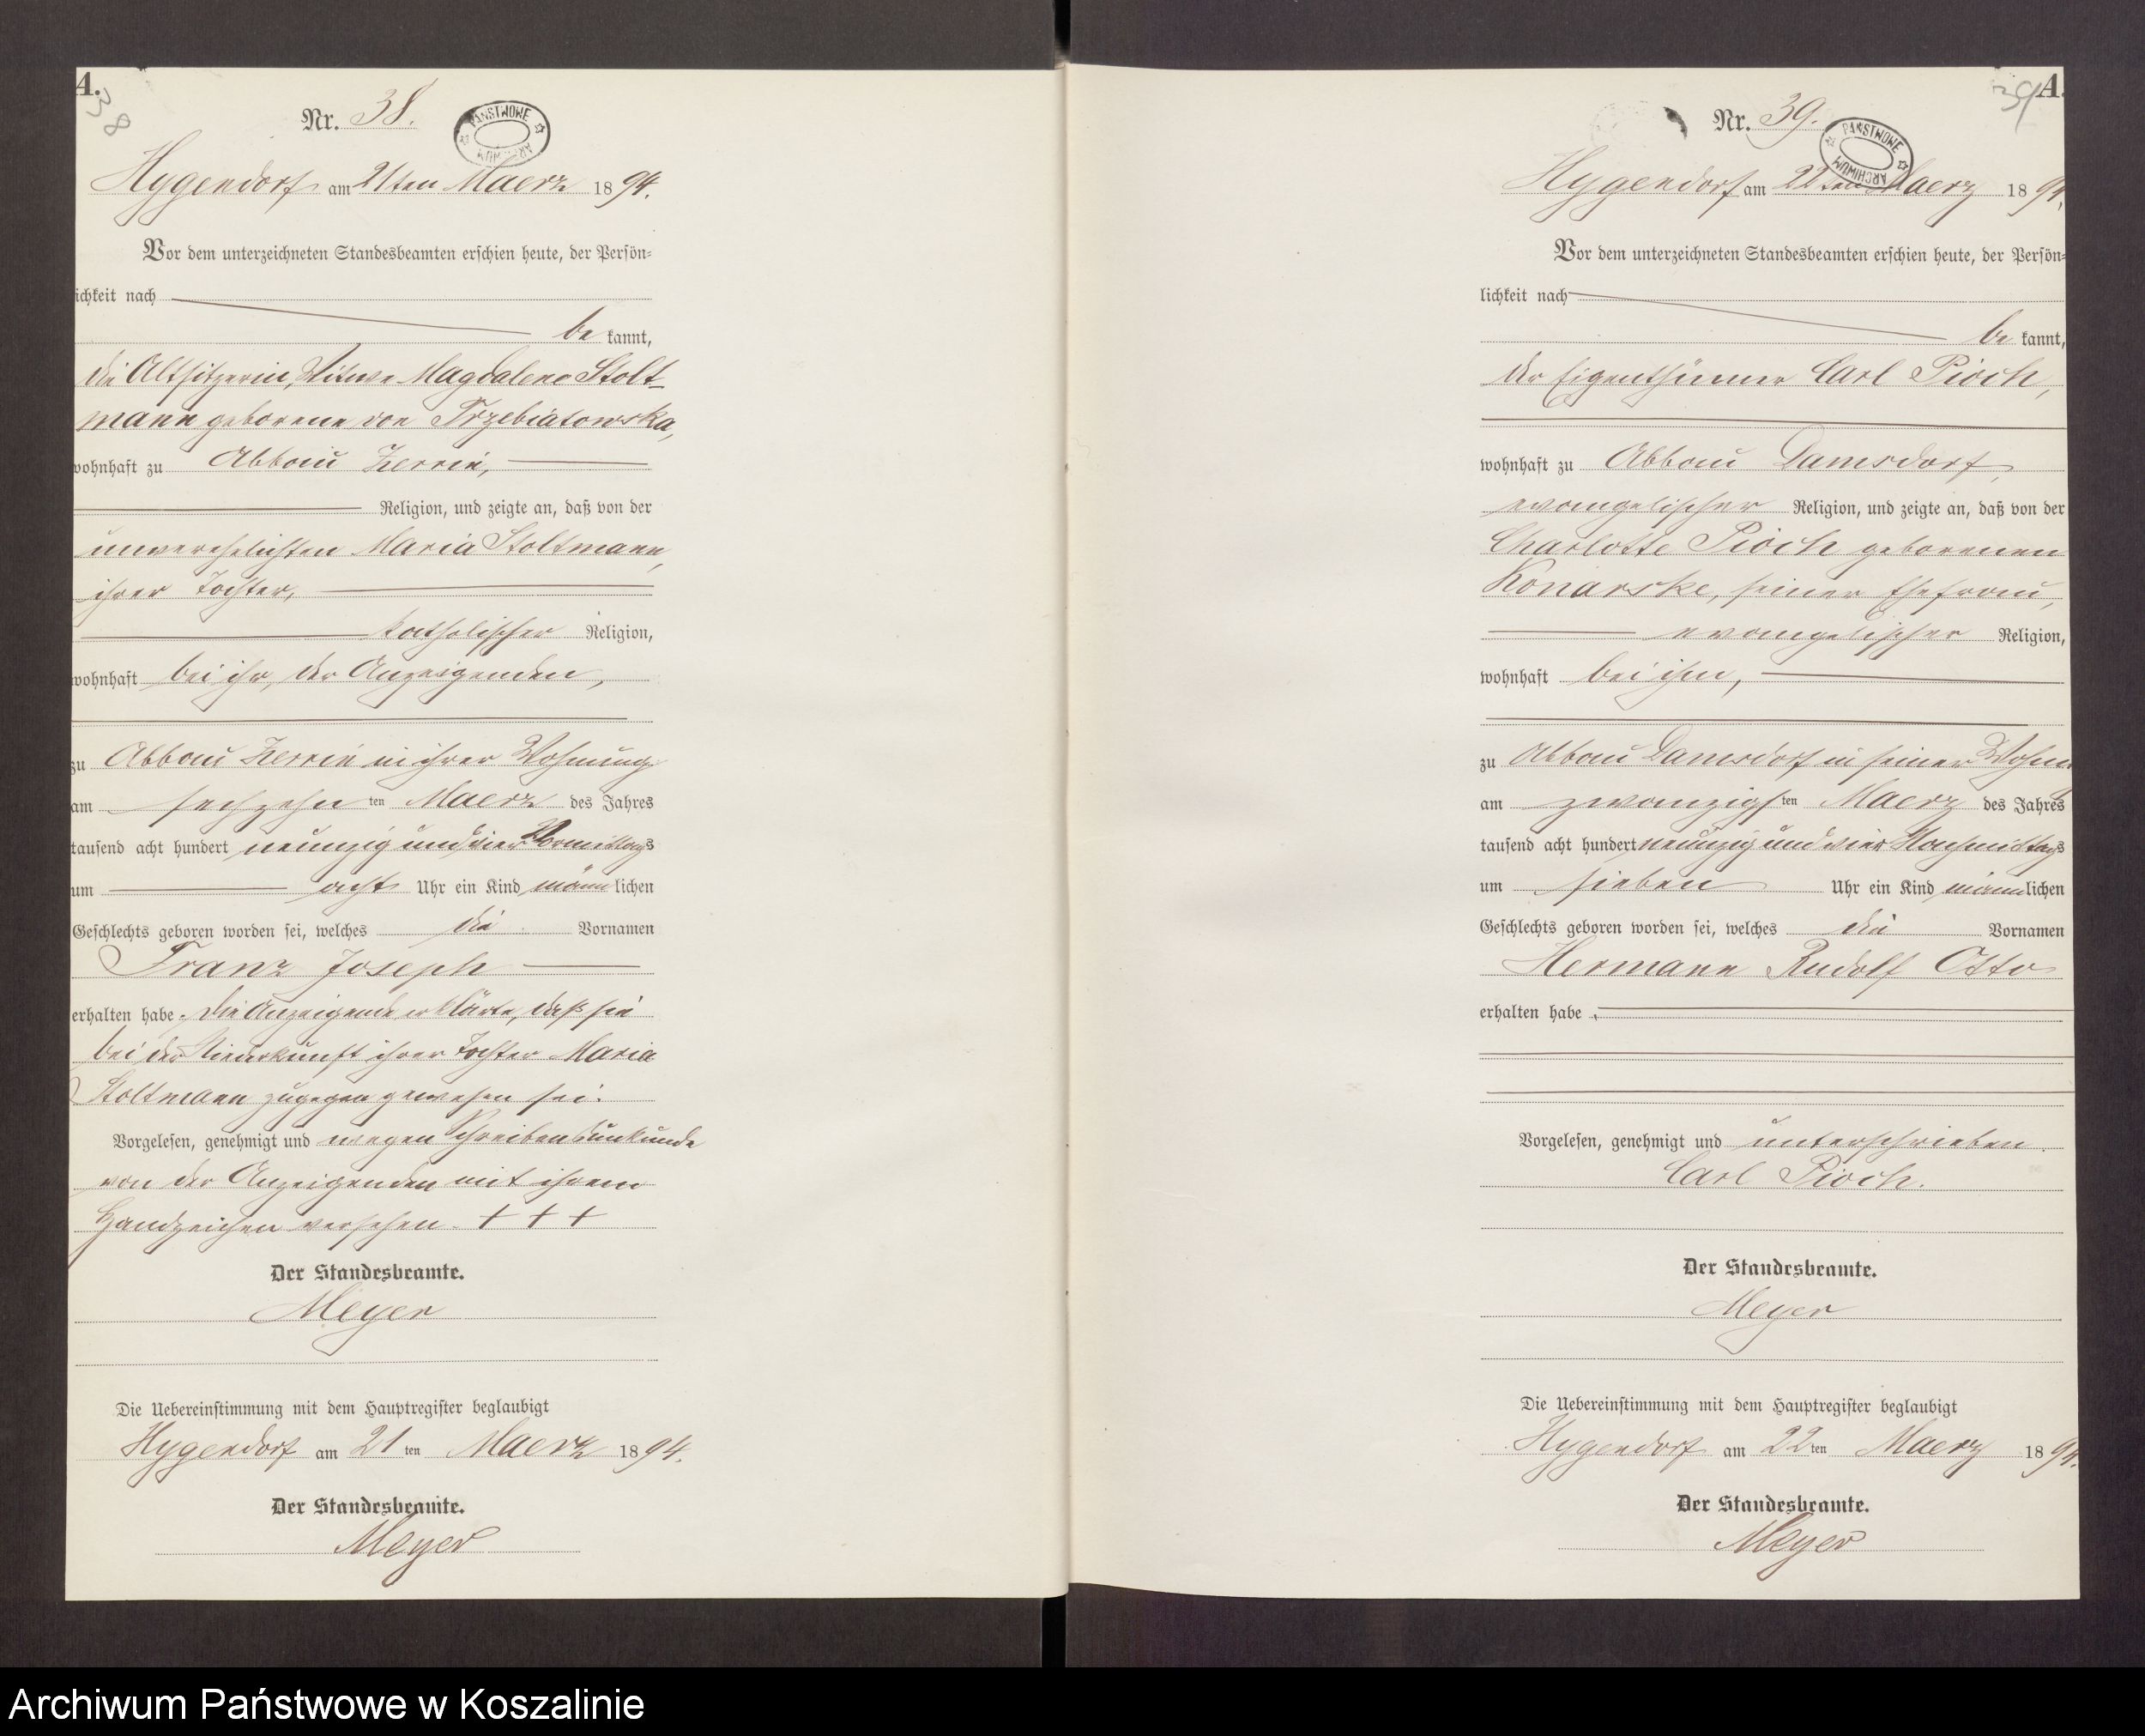 A.
38
Nr. 38.
PAŃSTWOWE ARCHIWUM
Hygendorf am 21ten Maerz 1894.
Vor dem unterzeichneten Standesbeamten erschien heute, der Persön-
lichkeit nach
be kannt,
die Altsitzerin, Witwe Magdalene Stolt-
mann geborene von Trzebiatowska,
wohnhaft zu Abbau Zerrin,
Religion, und zeigte an, daß von der
unverehelichten Maria Stoltmann,
ihrer Tochter,
katholischer Religion,
wohnhaft bei ihr, der Anzeigenden,
zu Abbau Zerrin in ihrer Wohnung
am sechzehn ten Maerz des Jahres
tausend acht hundert neunzig und vier Vormittags
um acht Uhr ein Kind männlichen
Geschlechts geboren worden sei, welches die Vornamen
Franz Joseph
erhalten habe. Die Anzeigende erklärte, daß sie
bei der Niederkunft ihrer Tochter Maria
Stoltmann zugegen gewesen sei.
Vorgelesen, genehmigt und wegen Schreibensunkunde
von der Anzeigenden mit ihrem
Handzeichen versehen. + + +
Der Standesbeamte.
Meyer
Die Uebereinstimmung mit dem Hauptregister beglaubigt
Hygendorf am 21 ten Maerz 1894.
Der Standesbeamte.
Meyer
A.
39
Nr. 39.
PAŃSTWOWE ARCHIWUM
Hygendorf am 22ten Maerz 1894.
Vor dem unterzeichneten Standesbeamten erschien heute, der Persön-
lichkeit nach
be kannt,
der Eigenthümer Carl Pioch,
wohnhaft zu Abbau Damsdorf,
evangelischer Religion, und zeigte an, daß von der
Charlotte Pioch geborenen
Konarske, seiner Ehefrau,
evangelischer Religion,
wohnhaft bei ihm,
zu Abbau Damsdorf in seiner Wohnung
am zwanzigs ten Maerz des Jahres
tausend acht hundert neunzig und vier Nachmittags
um sieben Uhr ein Kind männlichen
Geschlechts geboren worden sei, welches die Vornamen
Hermann Rudolf Otto
erhalten habe.
Vorgelesen, genehmigt und unterschrieben.
Carl Pioch.
Der Standesbeamte.
Meyer
Die Uebereinstimmung mit dem Hauptregister beglaubigt
Hygendorf am 22 ten Maerz 1894.
Der Standesbeamte.
Meyer
Archiwum Państwowe w Koszalinie